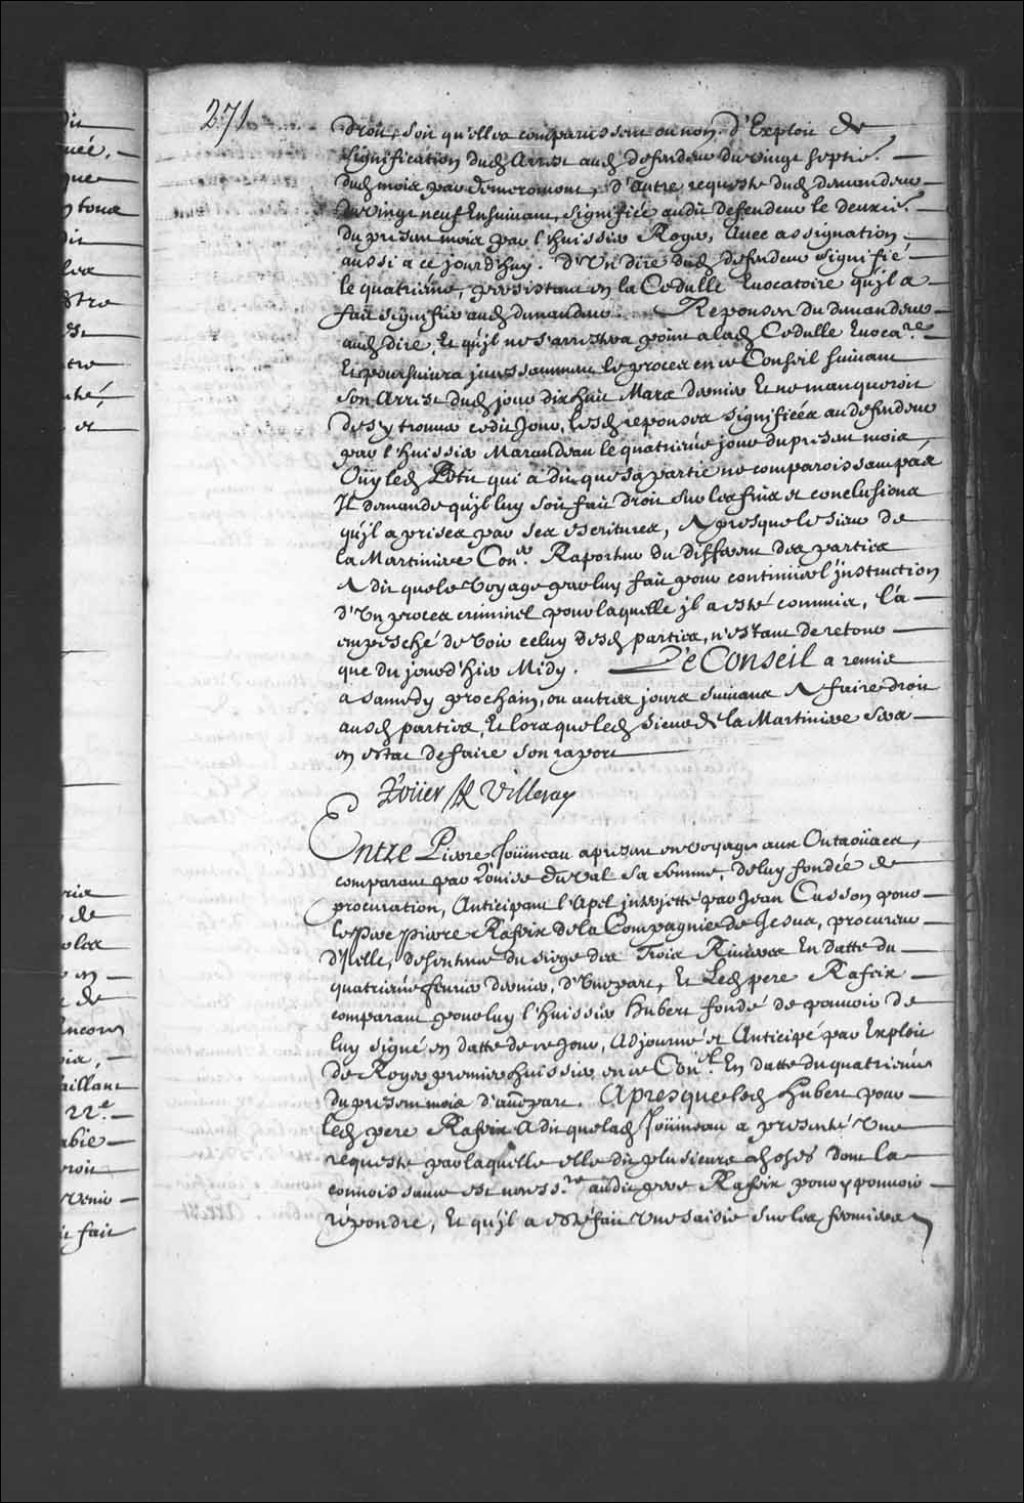 271
droit, soit qu'elles comparussent ou non. d'Exploit de
signification dud. Arrest aud. defendeur du vingt septie.
dud. mois par demeromont, d'autre requeste dud. demandeur
du vingt neuf Ensuivant, signifiée audit defendeur le deuxie.
du presant mois par l'huissier Roger, avec assignation
aussi a ce jourd'huy. d'Un dire dud. defendeur signifié
le quatriéme, persistant en la Cedulle Evocatoire qu'jl a
fait signifier aud. demandeur. Reponses du demandeur
aud. dire, Et qu'jl ne s'arrestera point a lad. Cedulle Evoca.re
Et poursuivra jncessamment le proces en ce Conseil suivant
son Arrest dud. jour dix huit Mars dernier Et ne manqueroit
de s'y trouver cedit Jour, lesd. reponses signifiées au defendeur
par l'huissier Marandeau le quatriéme jour du presant mois,
Ouy led. Petit qui a dit que sa partie ne comparoissant pas
Jl demande qu'jl luy soit fait droit sur les fins et conclusions
qu'jl a prises par ses escritures, Apres que le sieur de
la Martiniere Con.er Raporteur du differend des parties
A dit que le voyage par luy fait pour continuer l'jnstruction
d'Un proces criminel pour laquelle jl a esté commis, l'a
empesché de voir celuy desd. parties, n'estant de retour
que du jour d'hier Midy. Le Conseil a remis
a samedy prochain, ou autres jours suivans A faire droit
ausd. parties, Et lors que led. sieur de la Martiniere sera
en estat de faire son raport
Roüer de Villeray
Entre Pierre Joüineau a presant en voyage aux Outaöüacs,
comparant par Louise Duval sa femme, de luy fondée de
procuration, Anticipant l'Apel jnterjetté par Jean Cusson pour
le Pere pierre Rafeix de la Compagnie de Jesus, procureur
d'Jcelle, de sentence du siege des Trois Rivieres En datte du
quatriéme fevrier dernier, d'Une part, Et Led. pere Rafeix
comparant pour luy l'huissier Hubert fondé de pouvoir de
luy signé en datte de ce Jour, Adjourné et Anticipé par Exploit
de Roger premier huissier en ce Con.el En datte du quatriéme
du presant mois d'autre part. Apres que led. Hubert pour
led. pere Rafeix A dit que lad. Joüineau a presenté Une
requeste par laquelle elle dit plusieurs choses dont la
connoissance est necess.re audit pere Rafeix pour y pouvoir
répondre, Et qu'jl a esté fait Une saisie sur les fermiers